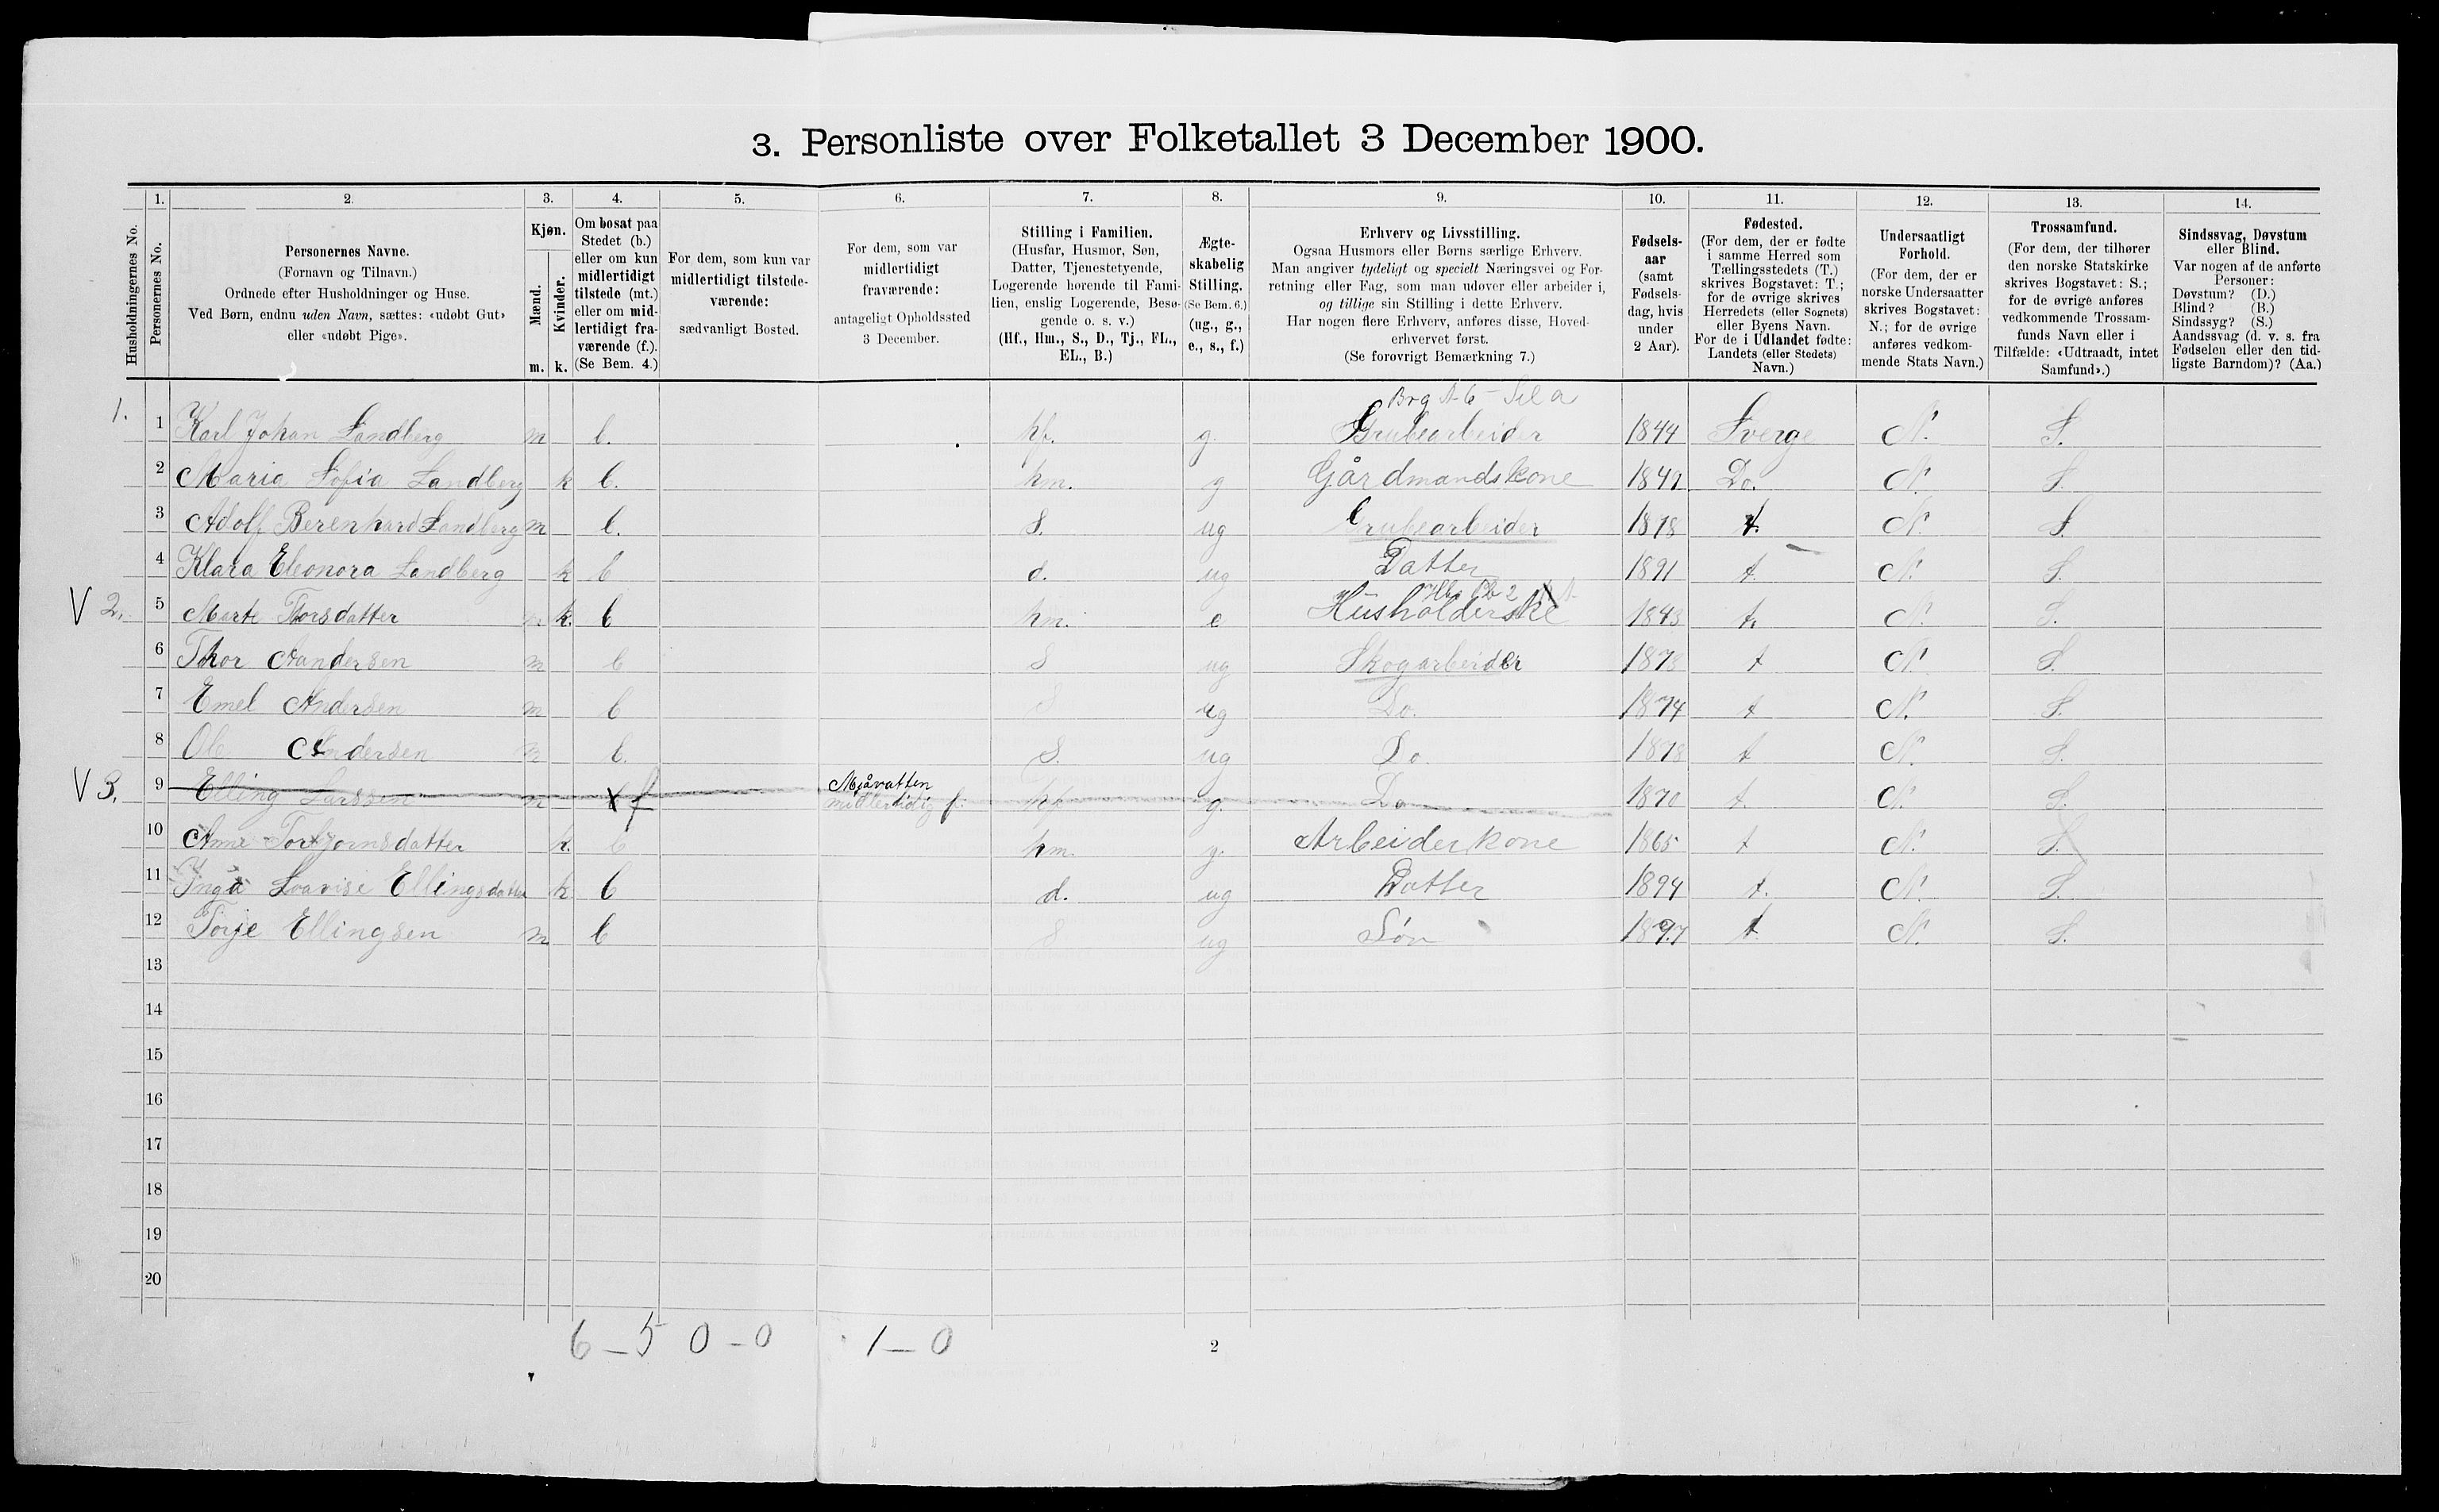 3. Personliste over Folketallet 3 December 1900.
Husholdningernes No.
1. Personernes No.
2. Personernes Navne.
(Fornavn og Tilnavn.)
Ordnede efter Husholdninger og Huse.
Ved Børn, endnu uden Navn, sættes: «udøbt Gut»
eller «udøbt Pige».
3. Kjøn.
Mænd. m.
Kvinder. k.
4. Om bosat paa
Stedet (b.)
eller om kun
midlertidigt
tilstede (mt.)
eller om mid-
lertidigt fra-
værende (f.).
(Se Bem. 4.)
5. For dem, som kun var
midlertidigt tilstede-
værende:
sædvanligt Bosted.
6. For dem, som var
midlertidigt
fraværende:
antageligt Opholdssted
3 December.
7. Stilling i Familien.
(Husfar, Husmor, Søn,
Datter, Tjenestetyende,
Logerende hørende til Fami-
lien, enslig Logerende, Besø-
gende o. s. v.)
(Hf., Hm., S., D., Tj., FL.,
EL., B.)
8. Ægte-
skabelig
Stilling.
(Se Bem. 6.)
(ug., g.,
e., s., f.)
9. Erhverv og Livsstilling.
Ogsaa Husmors eller Børns særlige Erhverv.
Man angiver tydeligt og specielt Næringsvei og For-
retning eller Fag, som man udøver eller arbeider i,
og tillige sin Stilling i dette Erhverv.
Har nogen flere Erhverv, anføres disse, Hoved-
erhvervet først.
(Se forøvrigt Bemærkning 7.)
10. Fødsels-
aar
(samt
Fødsels-
dag, hvis
under
2 Aar).
11. Fødested.
(For dem, der er fødte
i samme Herred som
Tællingsstedets (T.)
skrives Bogstavet: T.;
for de øvrige skrives
Herredets (eller Sognets)
eller Byens Navn.
For de i Udlandet fødte:
Landets (eller Stedets)
Navn.)
12. Undersaatligt
Forhold.
(For dem, der er
norske Undersaatter
skrives Bogstavet:
N.; for de øvrige
anføres vedkom-
mende Stats Navn.)
13. Trossamfund.
(For dem, der tilhører
den norske Statskirke
skrives Bogstavet: S.;
for de øvrige anføres
vedkommende Trossam-
funds Navn eller i
Tilfælde: «Udtraadt, intet
Samfund».)
14. Sindssvag, Døvstum
eller Blind.
Var nogen af de anførte
Personer:
Døvstum? (D.)
Blind? (B.)
Sindssyg? (S.)
Aandssvag (d. v. s. fra
Fødselen eller den tid-
ligste Barndom)? (Aa.)
1. 1 Karl Johan Landberg m b. hf. g. Grubearbeider 1844 Sverge N. S.
2 Maria Sofia Landberg k b. hm. g Gårdmandskone 1849 Do. N. S.
3 Adolf Berenhard Landberg m b. S. ug Grubearbeider 1878 t. N. S.
4 Klara Eleonora Landberg k b d. ug Datter 1891 t. N. S.
V 2. 5 Marte Thorsdatter k. b hm. e Husholderske 1843 t. N. S.
6 Thor Aandersen m b S ug Skogarbeider 1878 t N. S.
7 Emel Andersen m b S ug Do. 1874 t N. S.
8 Ole Andersen m b. S. ug Do. 1878 t N. S.
V 3. 9 Elling Larssen m f Mjåvatten
midlertidig f. hf g. Do 1870 t. N. S.
10 Anne Torbjornsdatter k. b hm. g. Arbeiderkone 1865 t N. S.
11 Inga Lovise Ellingsdatter k b d. ug Datter 1894 t. N. S.
12 Torje Ellingsen m b S ug Søn 1897 t N. S.
13
14
15
16
17
18
19
20
6 – 5 0 – 0 1 – 0
2